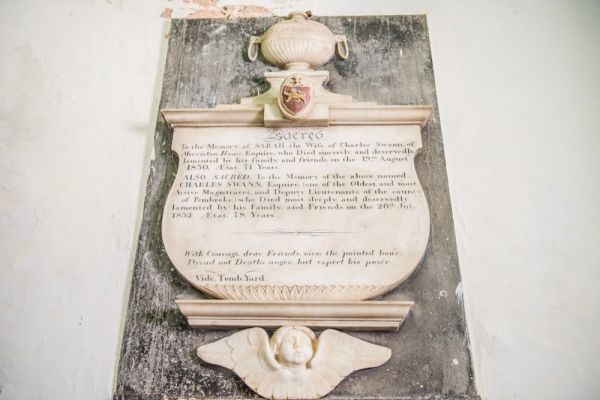 Sacred
To the Memory of SARAH, the Wife of Charles Swann, of
House Esquire, who Died sincerely and deservedly
lamented by her family and friends, on the 19th August
1830. Ætat. 71 Years.
ALSO SACRED, To the Memory of the above named
CHARLES SWANN, Esquire, (one of the Oldest, and most
Active Magistrates, and Deputy Lieutenants, of the county
of Pembroke,) who Died most deeply, and deservedly
lamented by his Family, and Friends, on the 26th July
1832. Ætat. 78 Years.
With Courage, dear Friends, view the pointed hour,
Dread not Deaths anger, but expect his power.
Vide. Tomb. Yard.